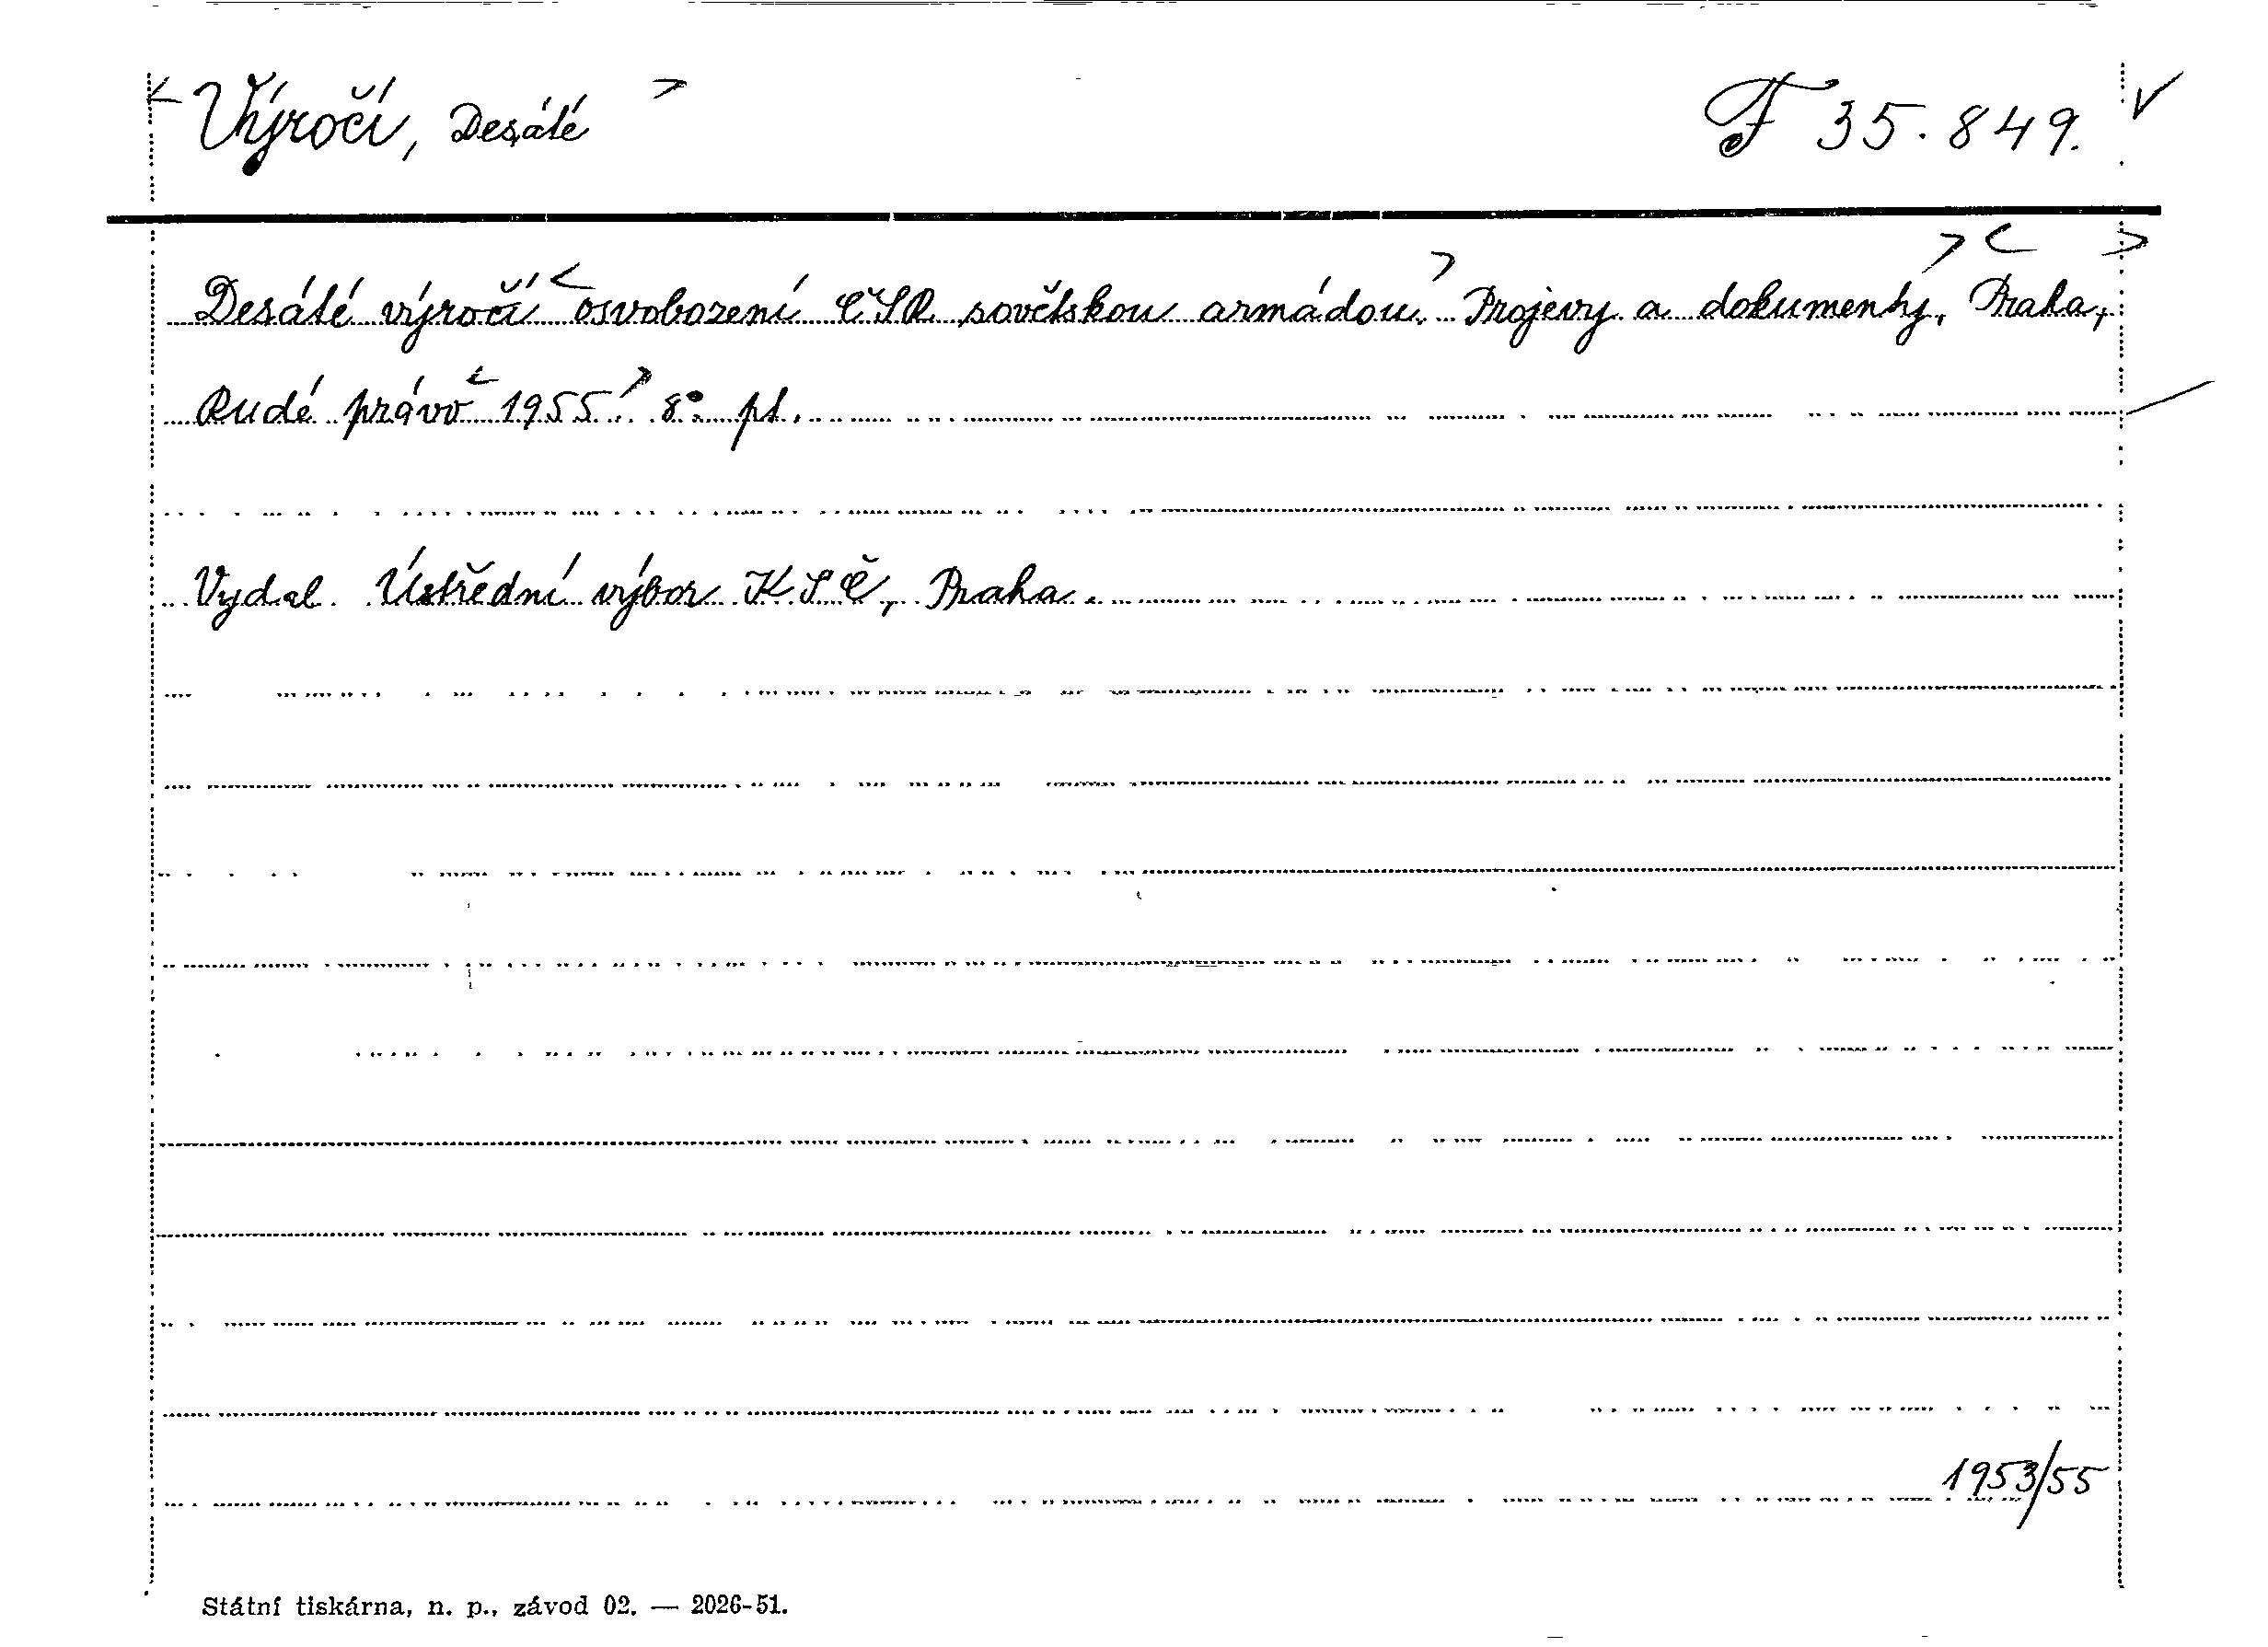 Výročí, Desáté F 35.849.
Desáté výročí osvobození ČSR sovětskou armádou. Projevy a dokumenty. Praha,
Rudé právo 1955. 8°. pl.
Vydal Ústřední výbor KSČ, Praha.
1953/55
Státní tiskárna, n. p., závod 02. — 2026-51.